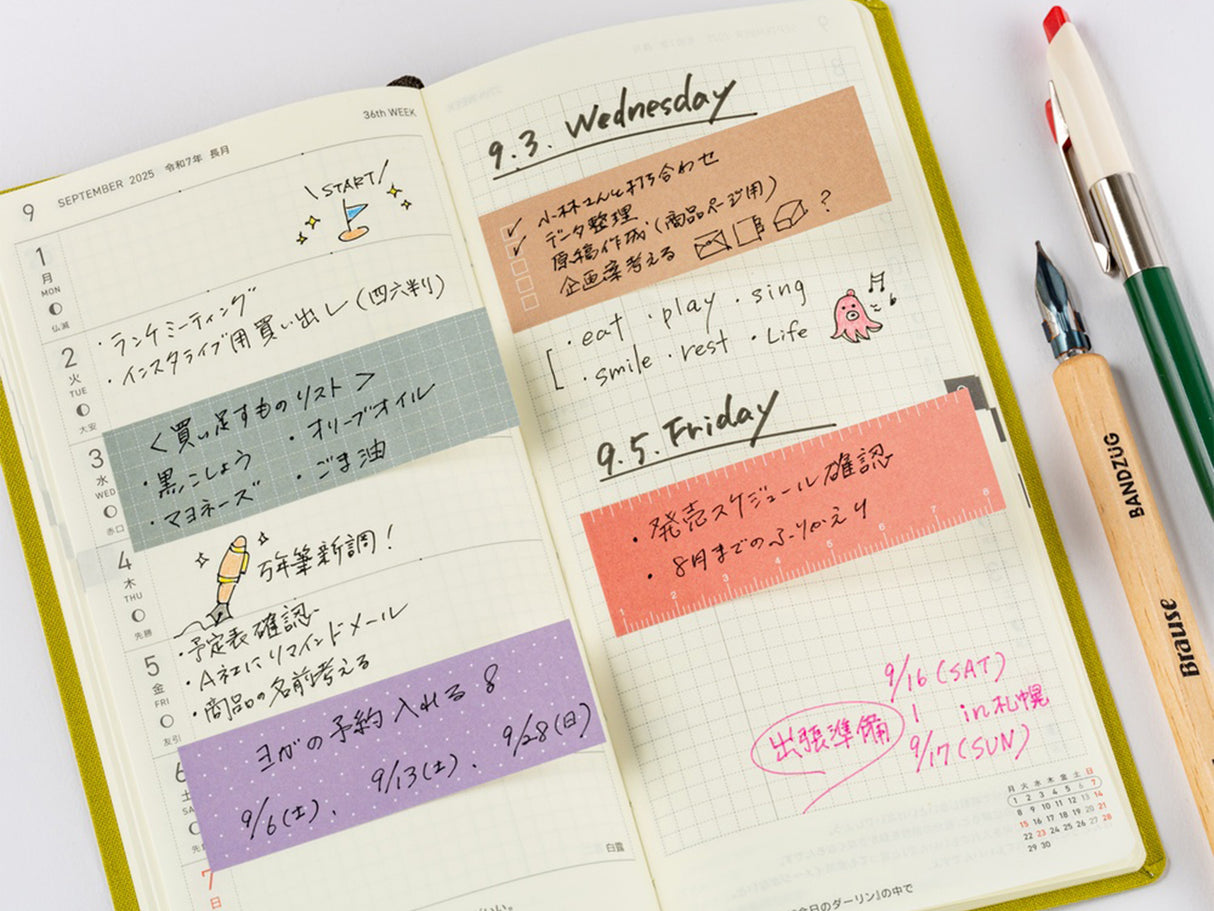 9 SEPTEMBER 2025 令和7年 長月
36th WEEK
1
月
MON
仏滅
\START/
2
火
TUE
大安
・ランチミーティング
・インスタライブ用買い出し(四六判)
3
水
WED
赤口
<買い足すものリスト>
・黒こしょう ・オリーブオイル
・マヨネーズ ・ごま油
4
木
THU
先勝
万年筆新調!
5
金
FRI
友引
・予定表確認
・A社にリマインドメール
・商品の名前考える
6
土
ヨガの予約入れる8
9/6(土)、9/13(土)、9/28(日)
7
日
白露
9.3. Wednesday
✓ 小林さんと打ち合わせ
✓ データ整理
原稿作成(商品ページ用)
企画案考える ?
・eat ・play ・sing
・smile ・rest ・Life
9.5. Friday
・発売スケジュール確認
・8月までのふりかえり
1 2 3 4 5 6 7 8
9/16(SAT)
出張準備 in札幌
9/17(SUN)
月 火 水 木 金 土 日
1 2 3 4 5 6 7
8 9 10 11 12 13 14
15 16 17 18 19 20 21
22 23 24 25 26 27 28
29 30
今日のダーリン』の中で
BANDZUG
Brause